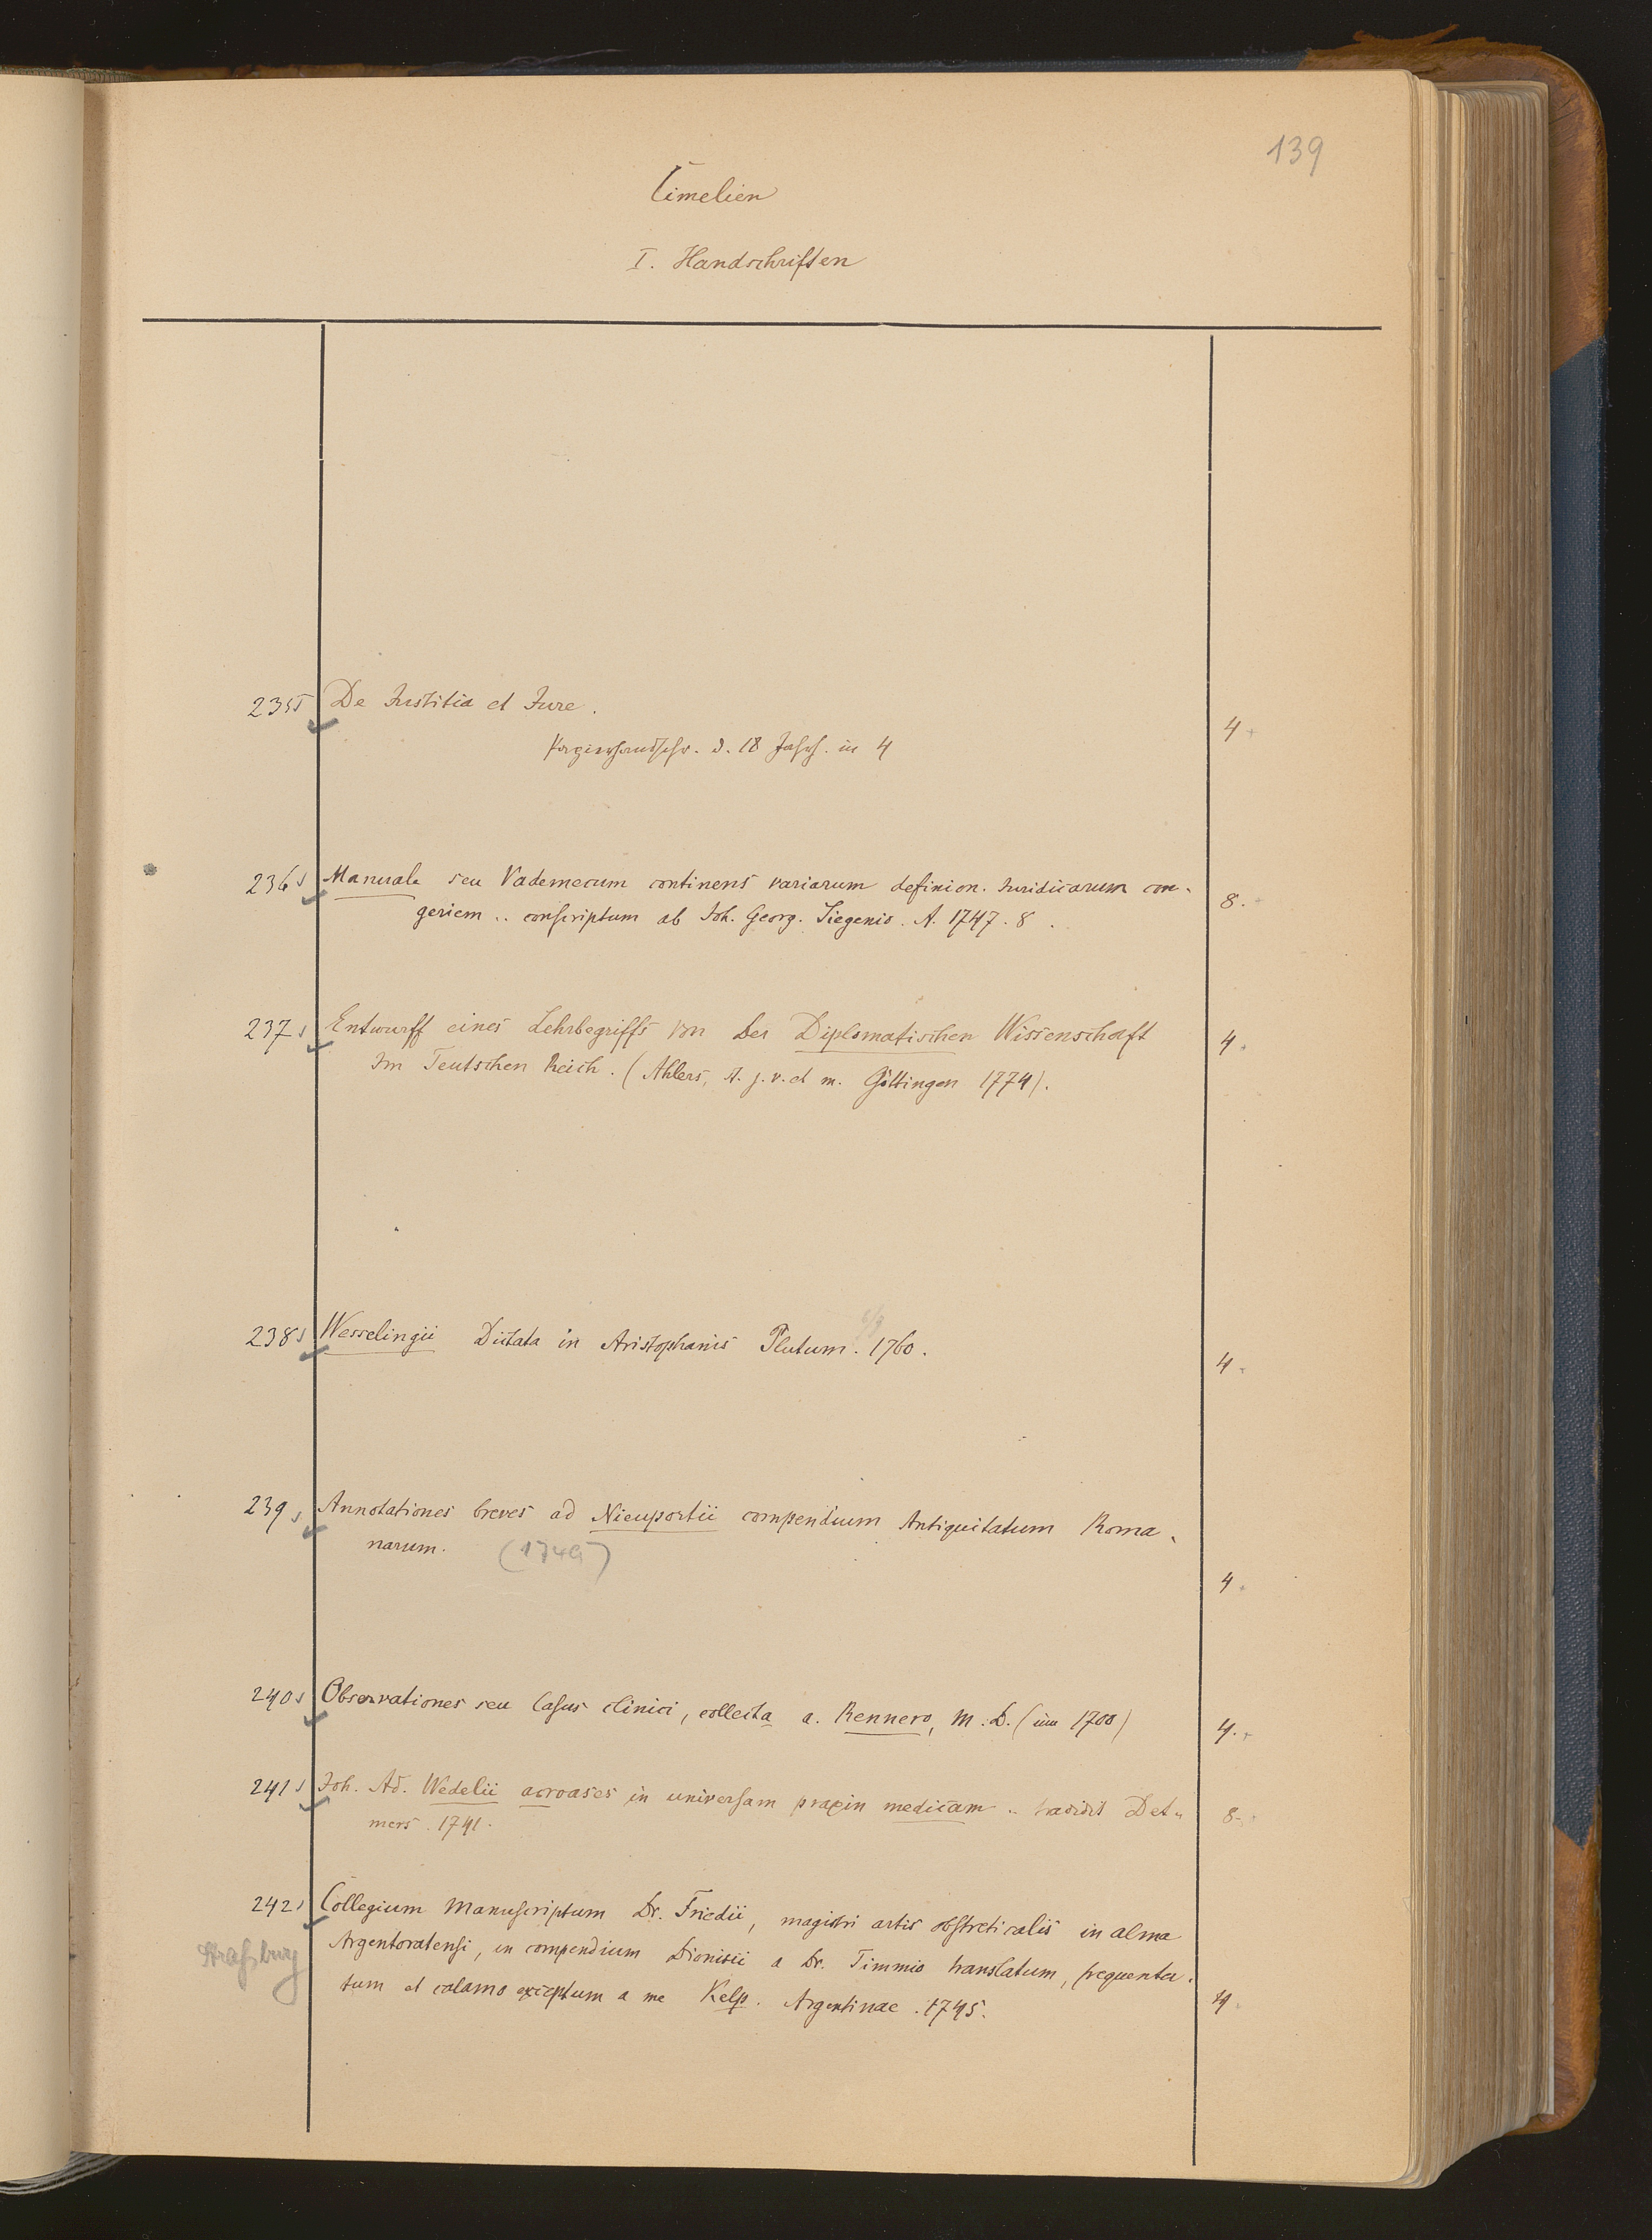 139
Cimelien
I. Handschriften
235 De Iustitia et Iure.
Papierhandschr. d. 18 Jahrh. in 4
4
236 Manuale seu Vademecum continens variarum definion. Iuridicarum con-
geriem .. conscriptum ab Joh. Georg. Siegenio. A. 1747. 8.
8.
237 Entwurff eines Lehrbegriffs von der Diplomatischen Wissenschaft
Im Teutschen Reich. (Ahlers, A. j. v. et m. Göttingen 1774).
4
238 Wesselingii Dictata in Aristophanis Plutum. 1760.
4
239 Annotationes breves ad Nieuportii compendium Antiquitatum Roma-
narum. (1749)
4
240 Observationes seu Casus clinici, collecta a. Rennero, M. D. (um 1700)
4.
241 Joh. Ad. Wedelii acroases in universam praxin medicam .. tradidit Det-
mers. 1741.
8
242 Collegium Manuscriptum Dr. Friedii, magistri artis obstreticalis in alma
Argentoratensi, in compendium Dionisii a Dr. Timmio translatum, frequenta-
Straßburg
tum et calamo exceptum a me Kelp. Argentinae. 1745.
4